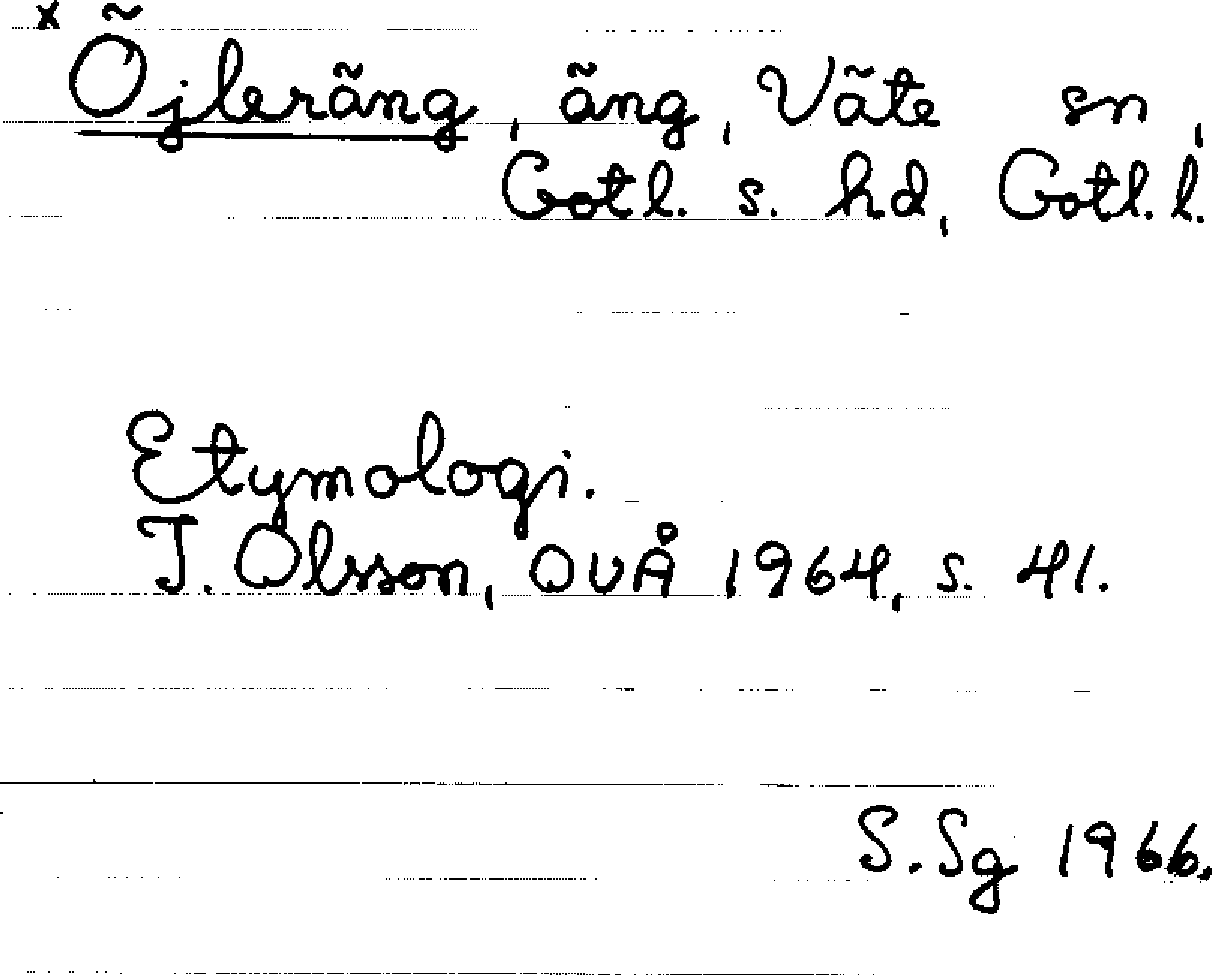 x Öjleräng, äng, Väte sn,
Gotl. s. hd, Gotl. l.
Etymologi.
I. Olsson, OUÅ 1964, s. 41.
S. Sg 1966.